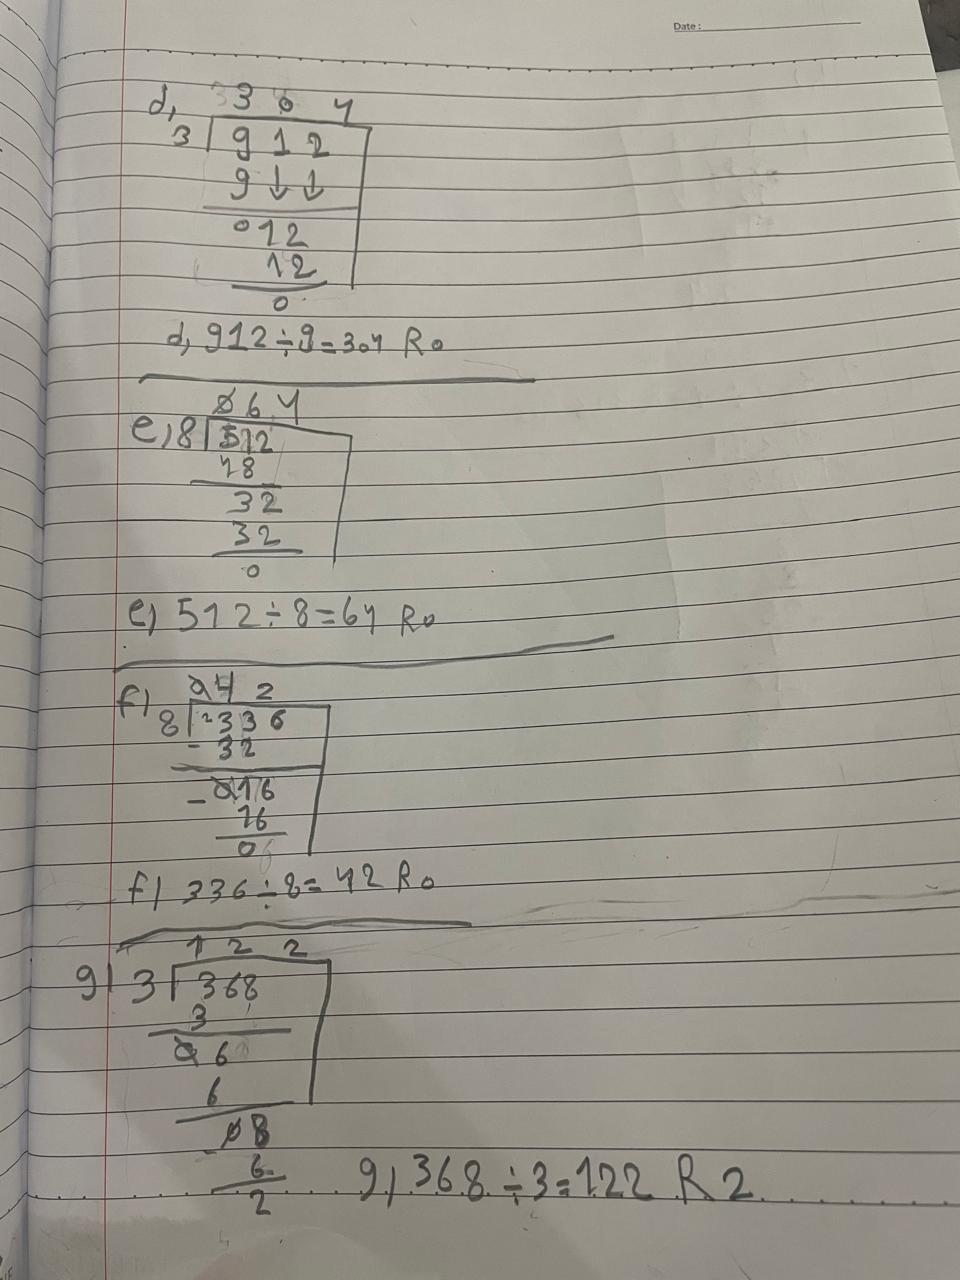 Date :
d, 3 0 4
3 9 1 2
9 ↓ ↓
0 1 2
1 2
0
d, 912 ÷ 9 = 304 R0
0 6 4
e, 8 512
48
32
32
0
e) 512 ÷ 8 = 64 R0
0 4 2
f) 8 336
- 32
- 016
16
0
f) 336 ÷ 8 = 42 R0
1 2 2
g) 3 368
3
0 6
6
- 0 8
6
2
g) 368 ÷ 3 = 122 R 2